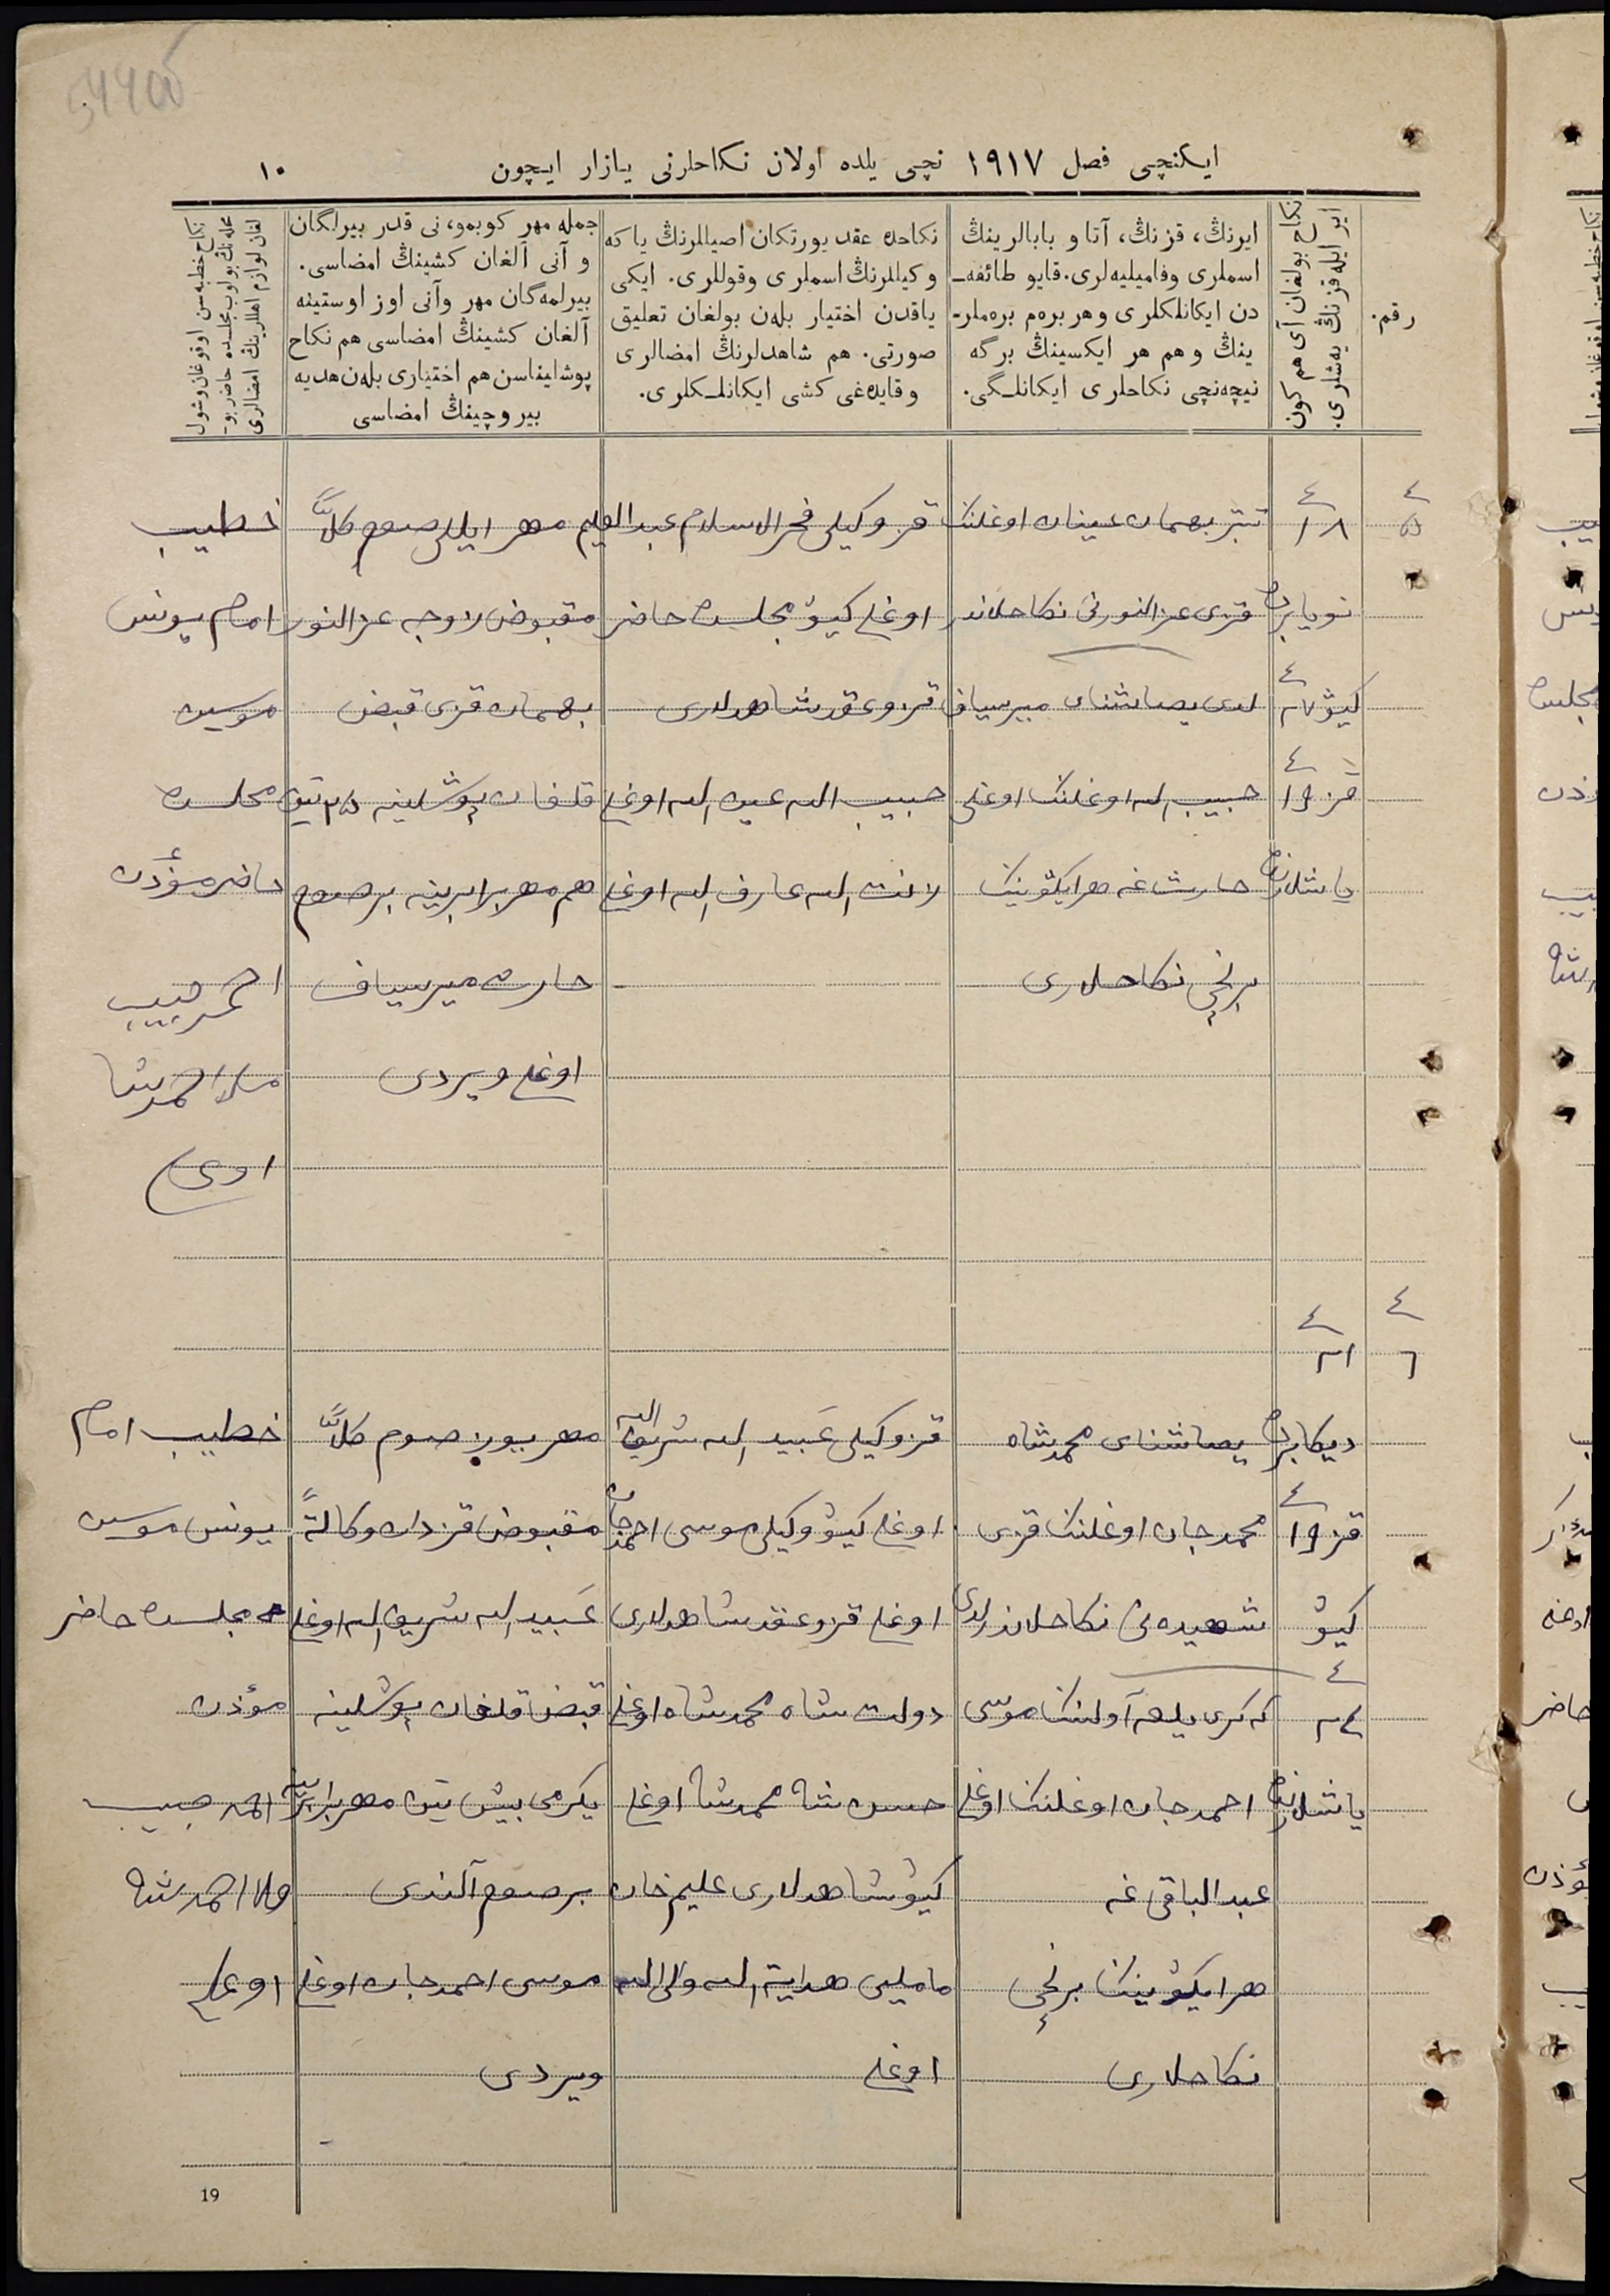 ایکنچی فصل ١٩١٧ نچی یلده اولان نکاحلرنی یازار ایچون
١٠
رقم.
نکاح بولغان آی هم کون
ایر ایله قزنڭ یەشلری.
ایرنڭ، قزنڭ، آتا و بابالرینڭ
اسملری وفامیلیه‌لری. قایو طائفه‌ـ
دن ایکانلکلری و هر بره‌م بره‌ملر-
ینڭ و هم هر ایکسینڭ برگه
نیچه‌نچی نکاحلری ایکانلـگی.
نکاحده عقد یورتکان اصیللرنڭ یا که
وکیللرنڭ اسملری وقوللری. ایکی
یاقدن اختیار بله‌ن بولغان تعلیق
صورتی. هم شاهدلرنڭ امضالری
وقایده‌غی کشی ایکانلـکلری.
جمله مهر کوبمو، نی قدر بیرلگان
و آنی آلغان کشینڭ امضاسی.
بیرلمه‌گان مهر وآنی اوز اوستینه
آلغان کشینڭ امضاسی هم نکاح
پوشلیناسن هم اختیاری بله‌ن هدیه
بیروچینڭ امضاسی
نکاح خطبه‌سن اوقوغان وشول
محله‌نڭ بولوب مجلسده حاضر بو-
لغان لوازم اهللرینڭ امضالری
٥
١٨
نویابرده
کیۉ ٢٧
قز ١٩
یاشلارنده
قزی عزالنورنی نکاحلاندر
لدی یصاشنای میرسیاف
حبیب الله اوغلنڭ اوغلی
حارث غه هر ایکۉینڭ
برنچی نکاحلاری
قز وکیلی فخرالاسلام عبدالعلیم
اوغلی کیۉ مجلسده حاضر
قز وعقد شاهدلاری
حبیب الله عبید الله اوغلی
عارف الله اوغلی
مهر ایللی صوم کلاً
مقبوض زوجه عزالنور
بهمان قزی قبض
قلغان پوشلینه ٢٥ تین
هم مهر برابرینه بر صوم
حارث میرسیاف
اوغلی ویردی
خطیب
امام یونس
موسین
مجلسده
حاضر مؤذن
احمد حبیب
ملا احمدشا
اوغلی
٦
٢١
دیکابرده
قز ١٩
کیۉ
٢٤
یاشلارنده
یصاشنای محمدشاه
محمدجان اوغلنڭ قزی
شهیده نی نکاحلاندرلدی
آولنڭ موسی
احمدجان اوغلنڭ اوغلی
عبدالباقی غه
هر ایکۉینڭ برنچی
نکاحلاری
قز وکیلی عبید الله شریف الله
اوغلی کیۉ وکیلی موسی احمدجان
اوغلی قز وعقد شاهدلاری
دولت شاه محمدشاه اوغلی
حسن شاه محمدشاه اوغلی
کیۉ شاهدلاری علیم خان
هدایة الله ولی الله
اوغلی
مهر یوز صوم کلاً
مقبوض قزدان وکالةً
عبید الله شریف الله اوغلی
قبض قلغان پوشلینه
یکرمی بیش تین مهر برابرینه
بر صوم آلندی
موسی احمدجان اوغلی
ویردی
خطیب امام
یونس موسین
مجلسده حاضر
مؤذن
احمد حبیب
ملا احمد شاه
اوغلی
19